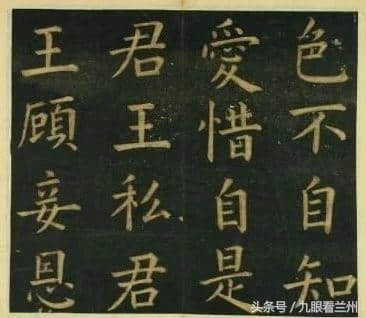 色不自知
愛惜自是
君王私君
王顧妾恩
头条号/九眼看兰州